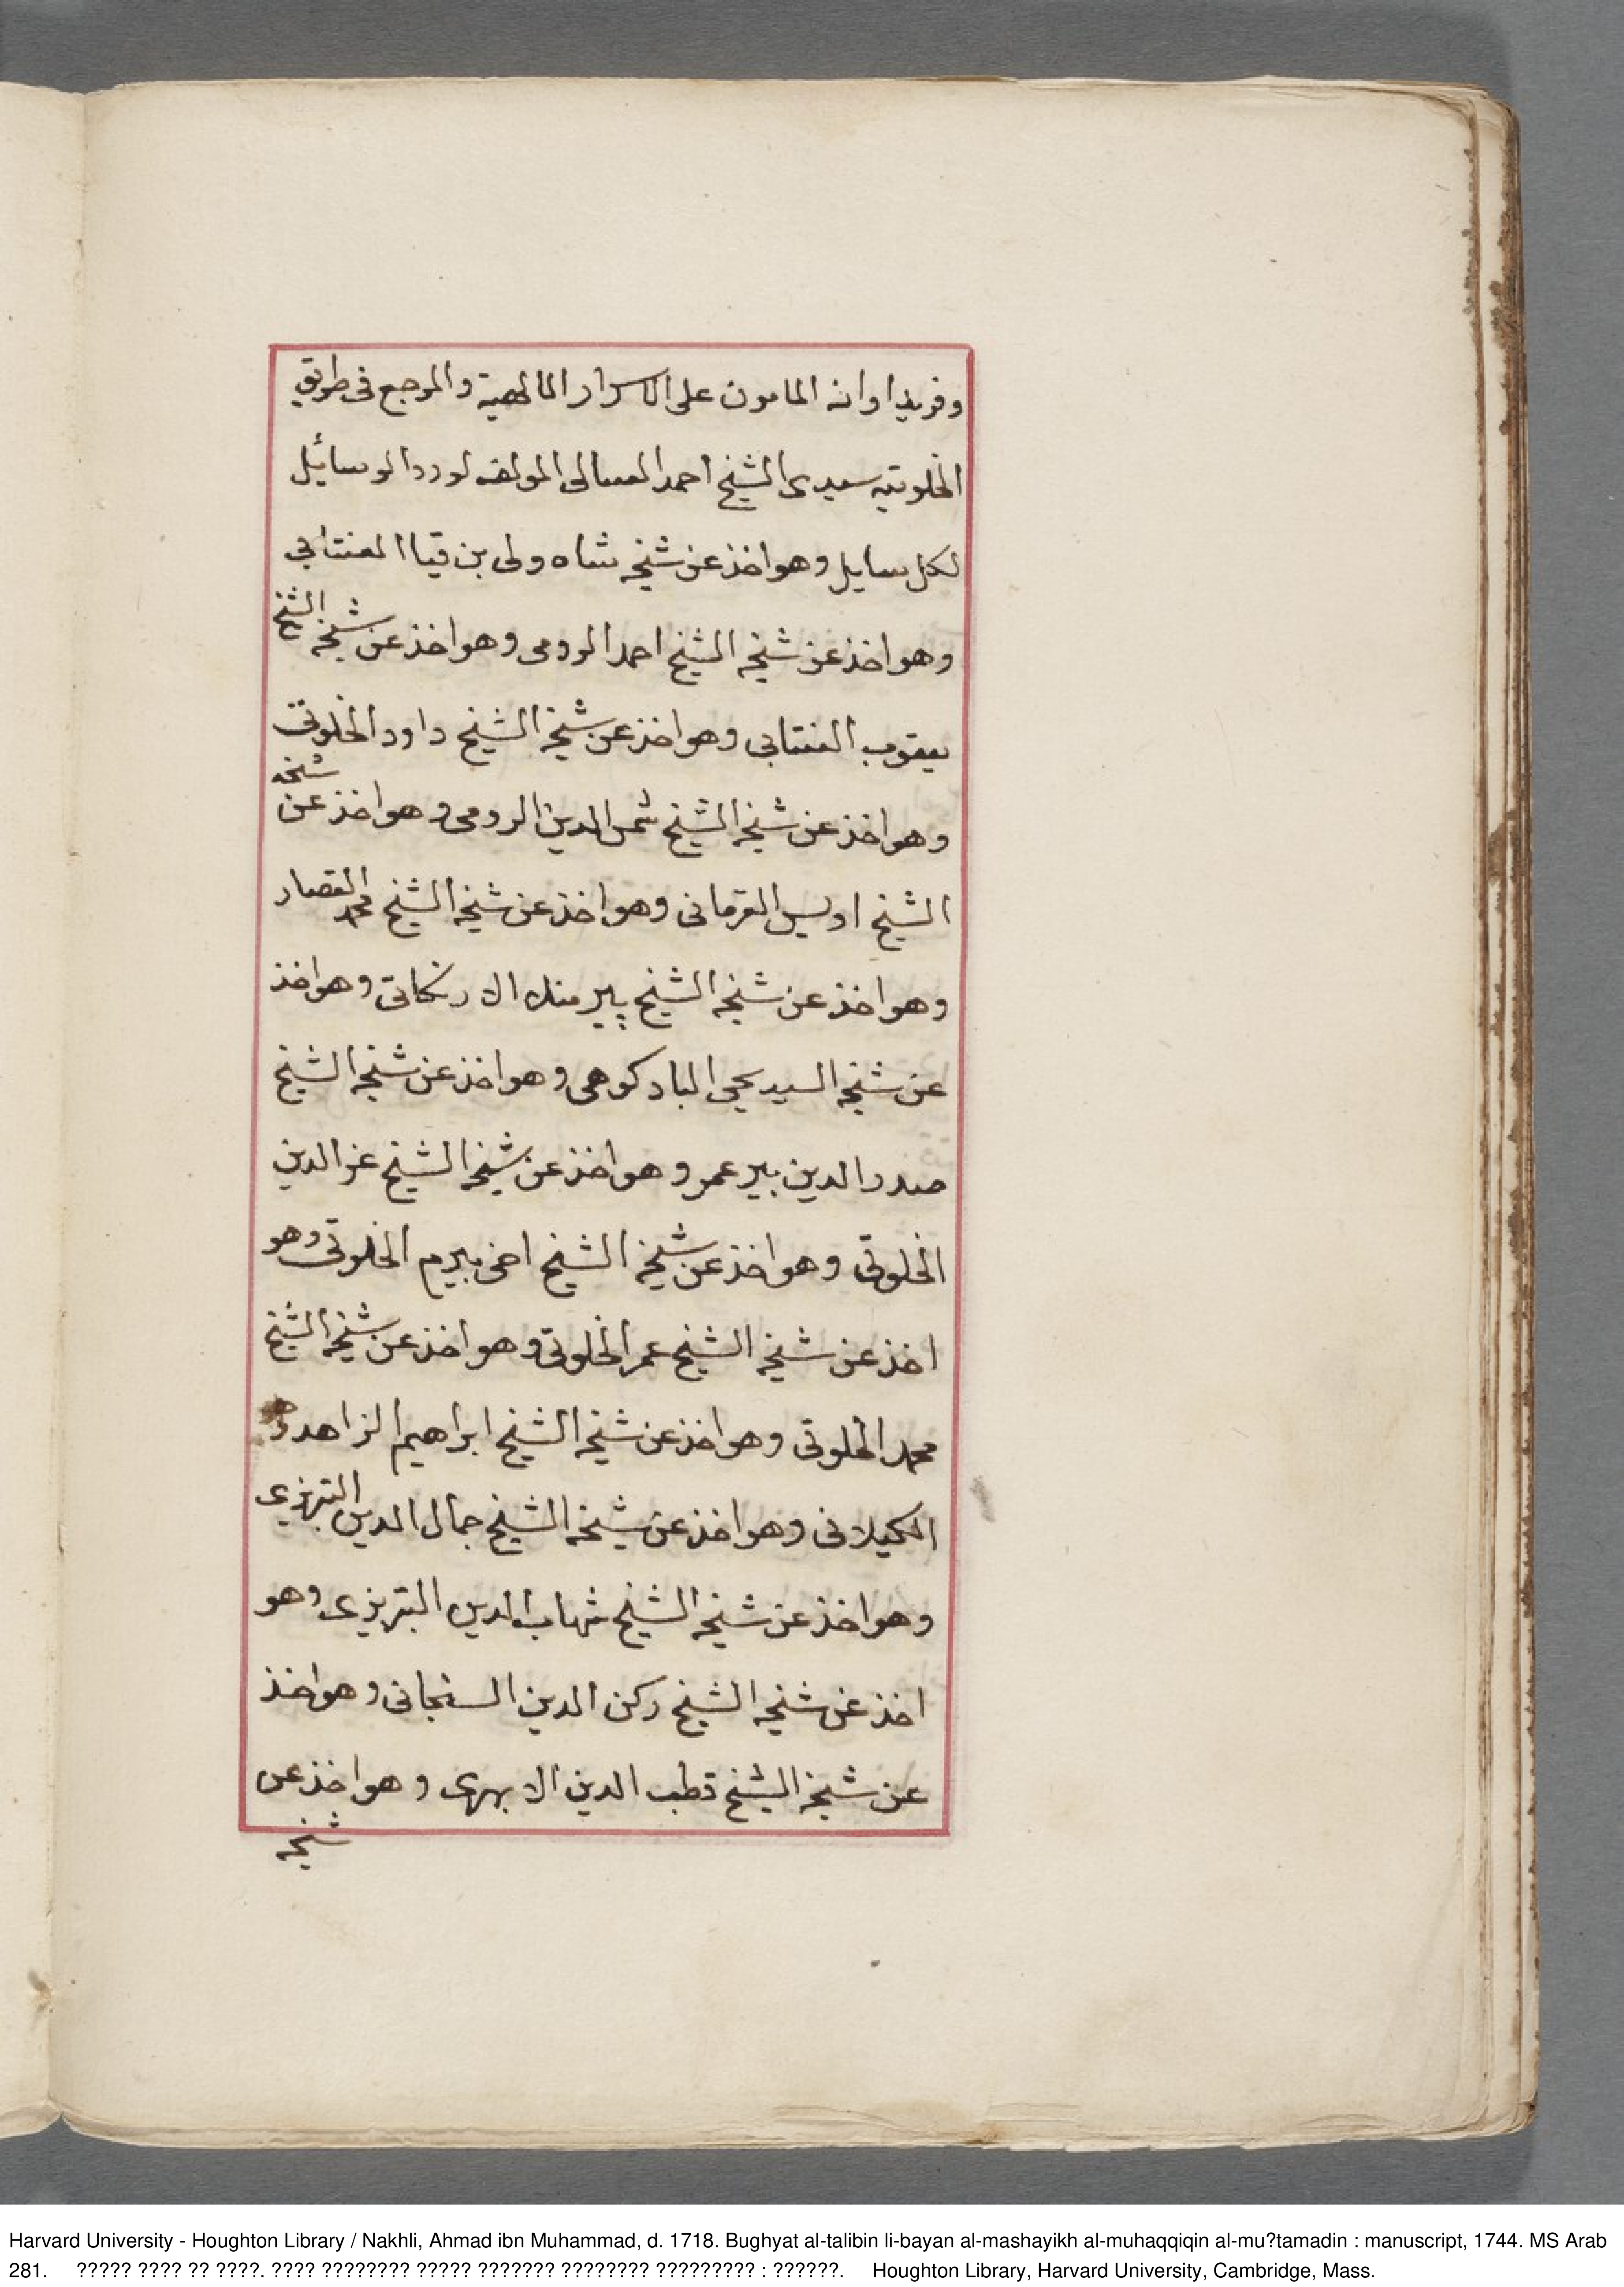 وفريد اوانه المامون على الاسرار الالهية والمرجع فى طريق
الخلوتيه سيدى الشيخ احمد العسالى المولف لورد الوسائل
لكل سايل وهو اخذ عن شيخه شاه ولى بن قيا العنتابي
وهو اخذ عن شيخه الشيخ احمد الرومى وهو اخذ عن شيخه الشيخ
يعقوب العنتابى وهو اخذ عن شيخه الشيخ داود الخلوتى
وهو اخذ عن شيخه الشيخ شمس الدين الرومى وهو اخذ عن شيخه
الشيخ اويس القرمانى وهو اخذ عن شيخه الشيخ محمد القصار
وهو اخذ عن شيخه الشيخ پير منلا الارنكانى وهو اخذ
عن شيخه السيد يحيى البادكوهى وهو اخذ عن شيخه الشيخ
صدر الدين بير عمر وهو اخذ عن شيخه الشيخ عز الدين
الخلوتى وهو اخذ عن شيخه الشيخ اخى بيرم الخلوتى وهو
اخذ عن شيخه الشيخ عمر الخلوتى وهو اخذ عن شيخه الشيخ
محمد الخلوتى وهو اخذ عن شيخه الشيخ ابراهيم الزاهد
الكيلانى وهو اخذ عن شيخه الشيخ جمال الدين التبريزى
وهو اخذ عن شيخه الشيخ شهاب الدين التبريزى وهو
اخذ عن شيخه الشيخ ركن الدين السنجانى وهو اخذ
عن شيخه الشيخ قطب الدين الابهرى وهو اخذ عن
شيخه
Harvard University - Houghton Library / Nakhli, Ahmad ibn Muhammad, d. 1718. Bughyat al-talibin li-bayan al-mashayikh al-muhaqqiqin al-mu?tamadin : manuscript, 1744. MS Arab
281. ????? ???? ?? ????. ???? ???????? ????? ??????? ???????? ????????? : ??????. Houghton Library, Harvard University, Cambridge, Mass.